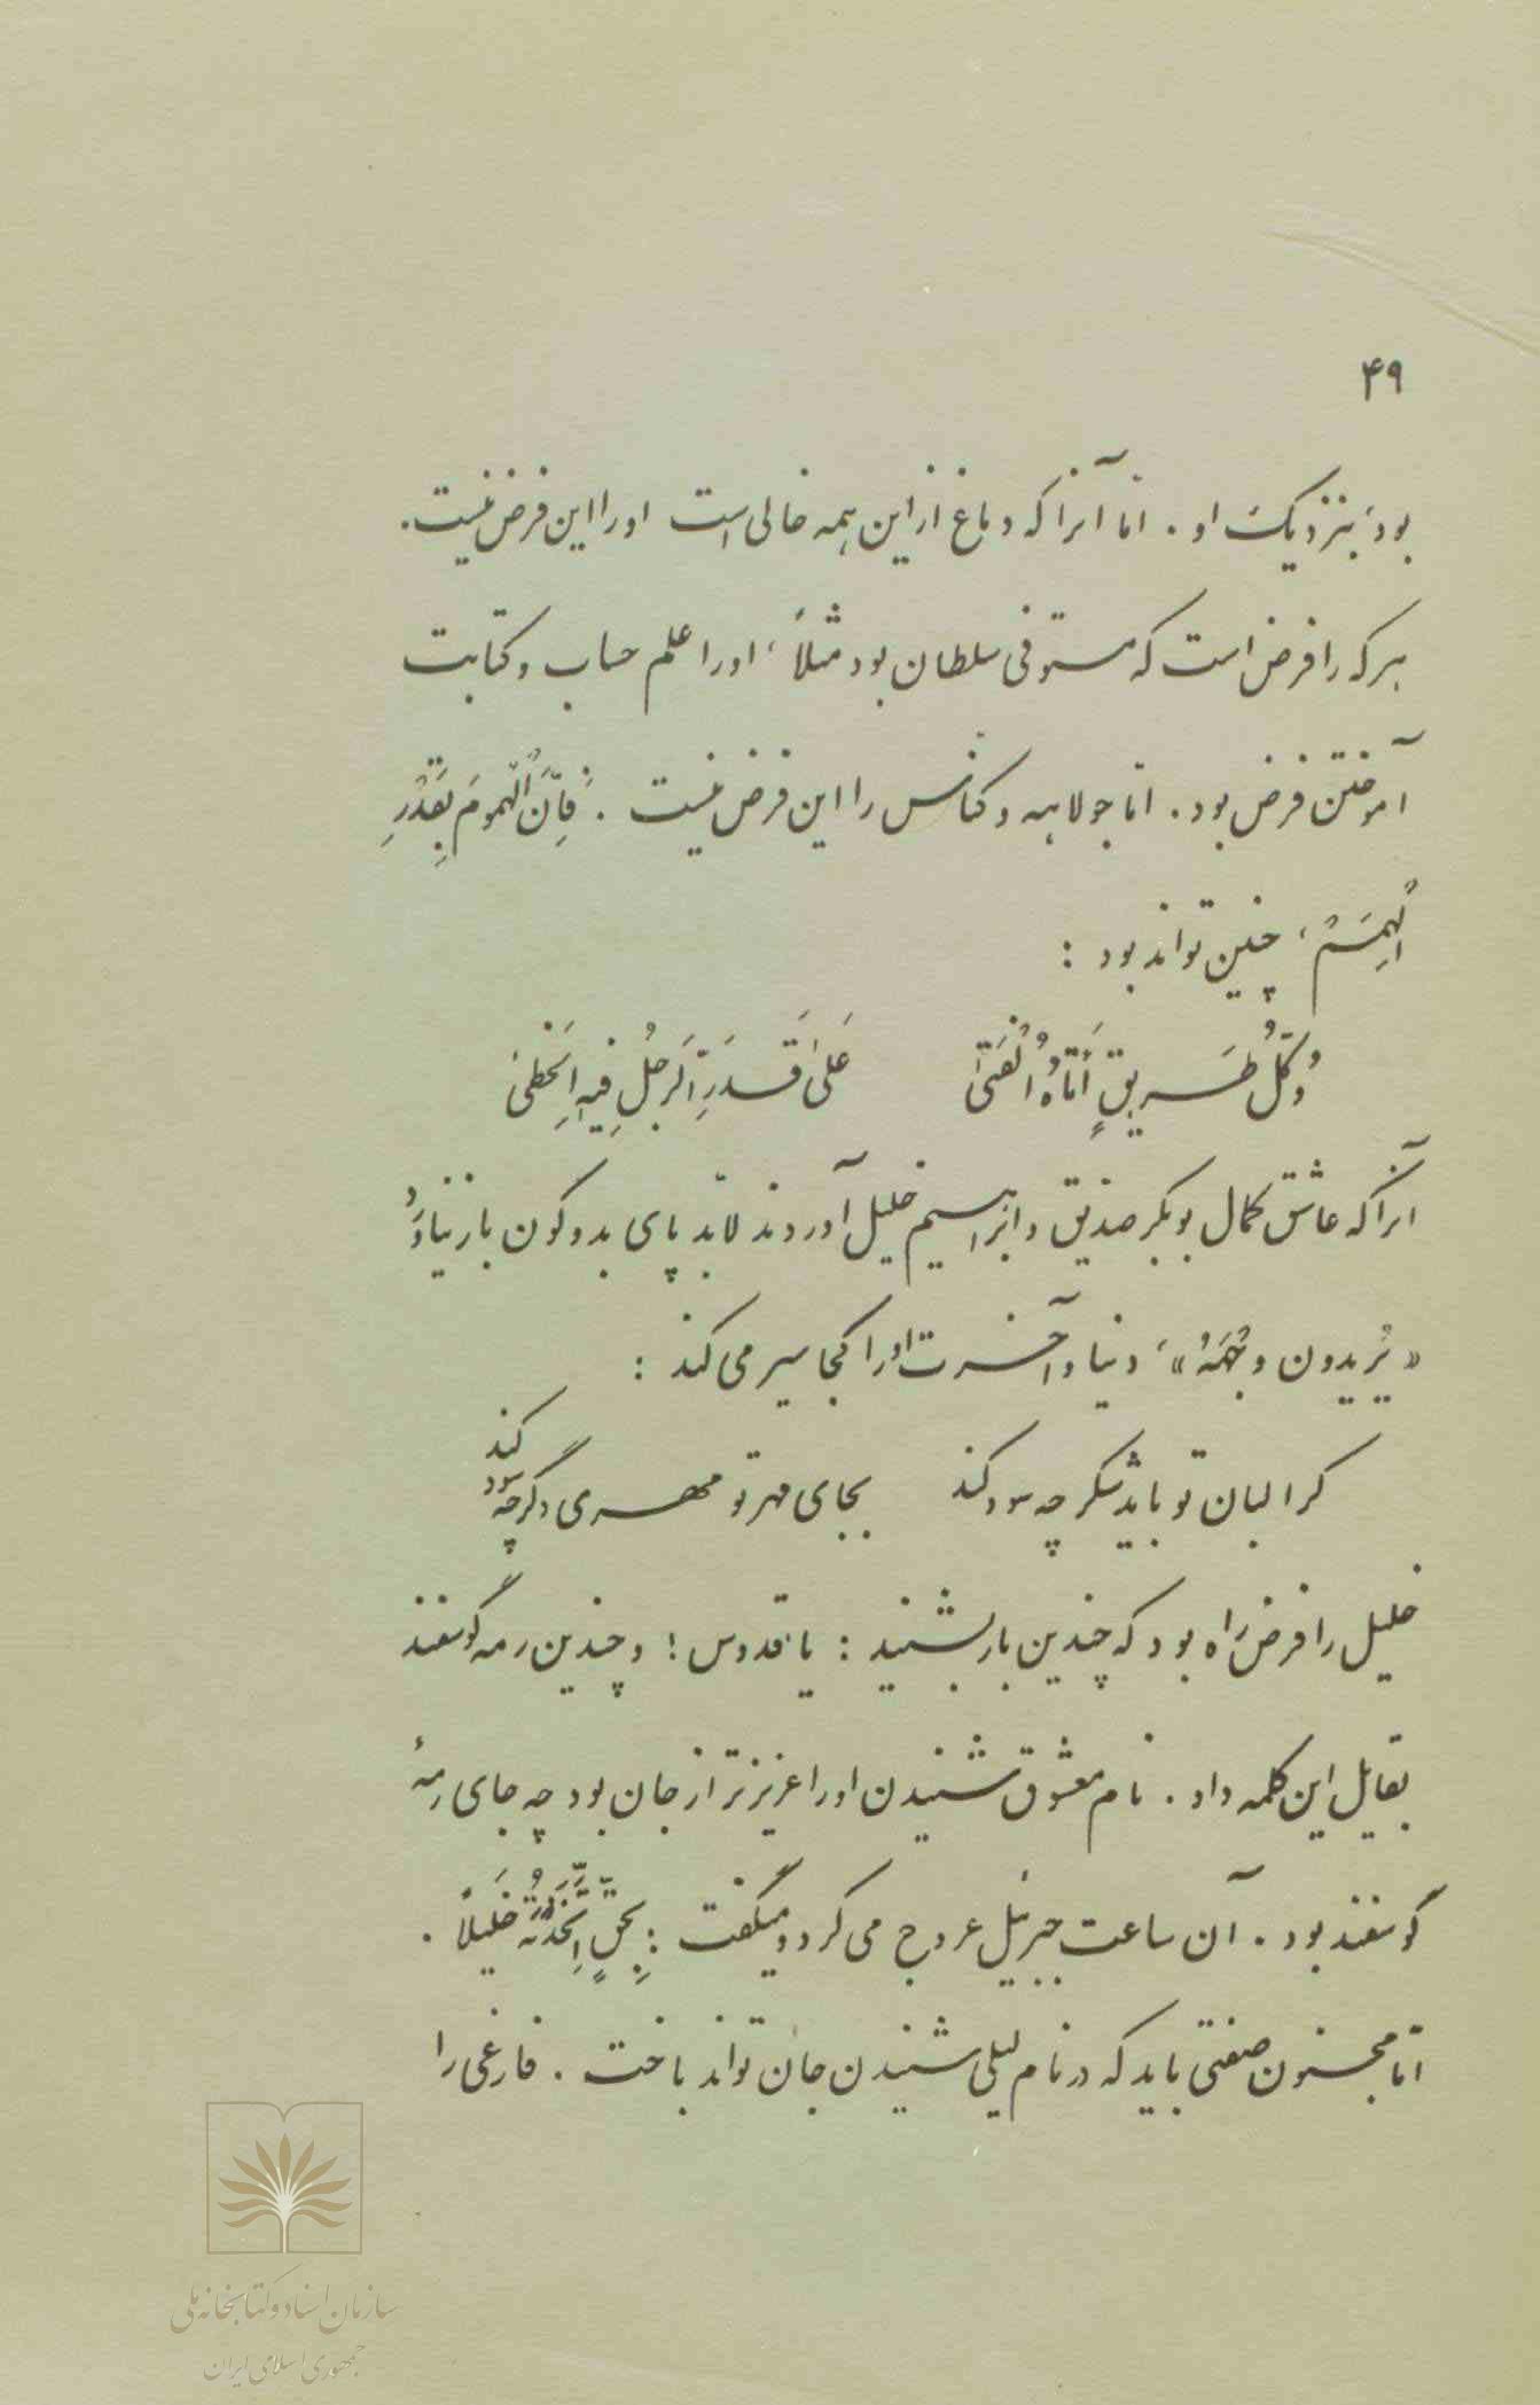 ۴۹
بود، بنزدیک او. امّا آنرا که دماغ از این همه خالی است اورا این فرض نیست.
هرکه را فرض است که مستوفی سلطان بود مثلاً، اورا علم حساب و کتابت
آموختن فرض بود. امّا جولاهه و کنّاس را این فرض نیست. فَإِنَّ الْهُمومَ بِقَدْرِ
الْهِمَمْ، چنین تواند بود :
وَکُلُّ طَریقٍ أَتاهُ الْفَتیٰ عَلیٰ قَدَرِ الرَّجُلِ فیهِ الْخَطیٰ
آنرا که عاشق کمال بوبکر صدّیق و ابراهیم خلیل آوردند لابد پای بدو کون باز نیاوَرَد
«یُریدون وجْهَهُ»، دنیا و آخرت اورا کجا سیر می کند :
کرا لبان تو باید شکر چه سود کند بجای مهر تو مهری دگر چه سود کند
خلیل را فرض راه بود که چندین بار بشنید : یا قدوس! و چندین رمه گوسفند
بقایل این کلمه داد. نام معشوق شنیدن اورا عزیزتر از جان بود چه جای رمهٔ
گوسفند بود. آن ساعت جبرئیل عروج می کرد و میگفت : بِحَقٍّ اتَّخَذْتَهُ خَلیلاً.
امّا مجنون صفتی باید که در نام لیلی شنیدن جان تواند باخت. فارغی را
سازمان اسناد و کتابخانه ملی
جمهوری اسلامی ایران